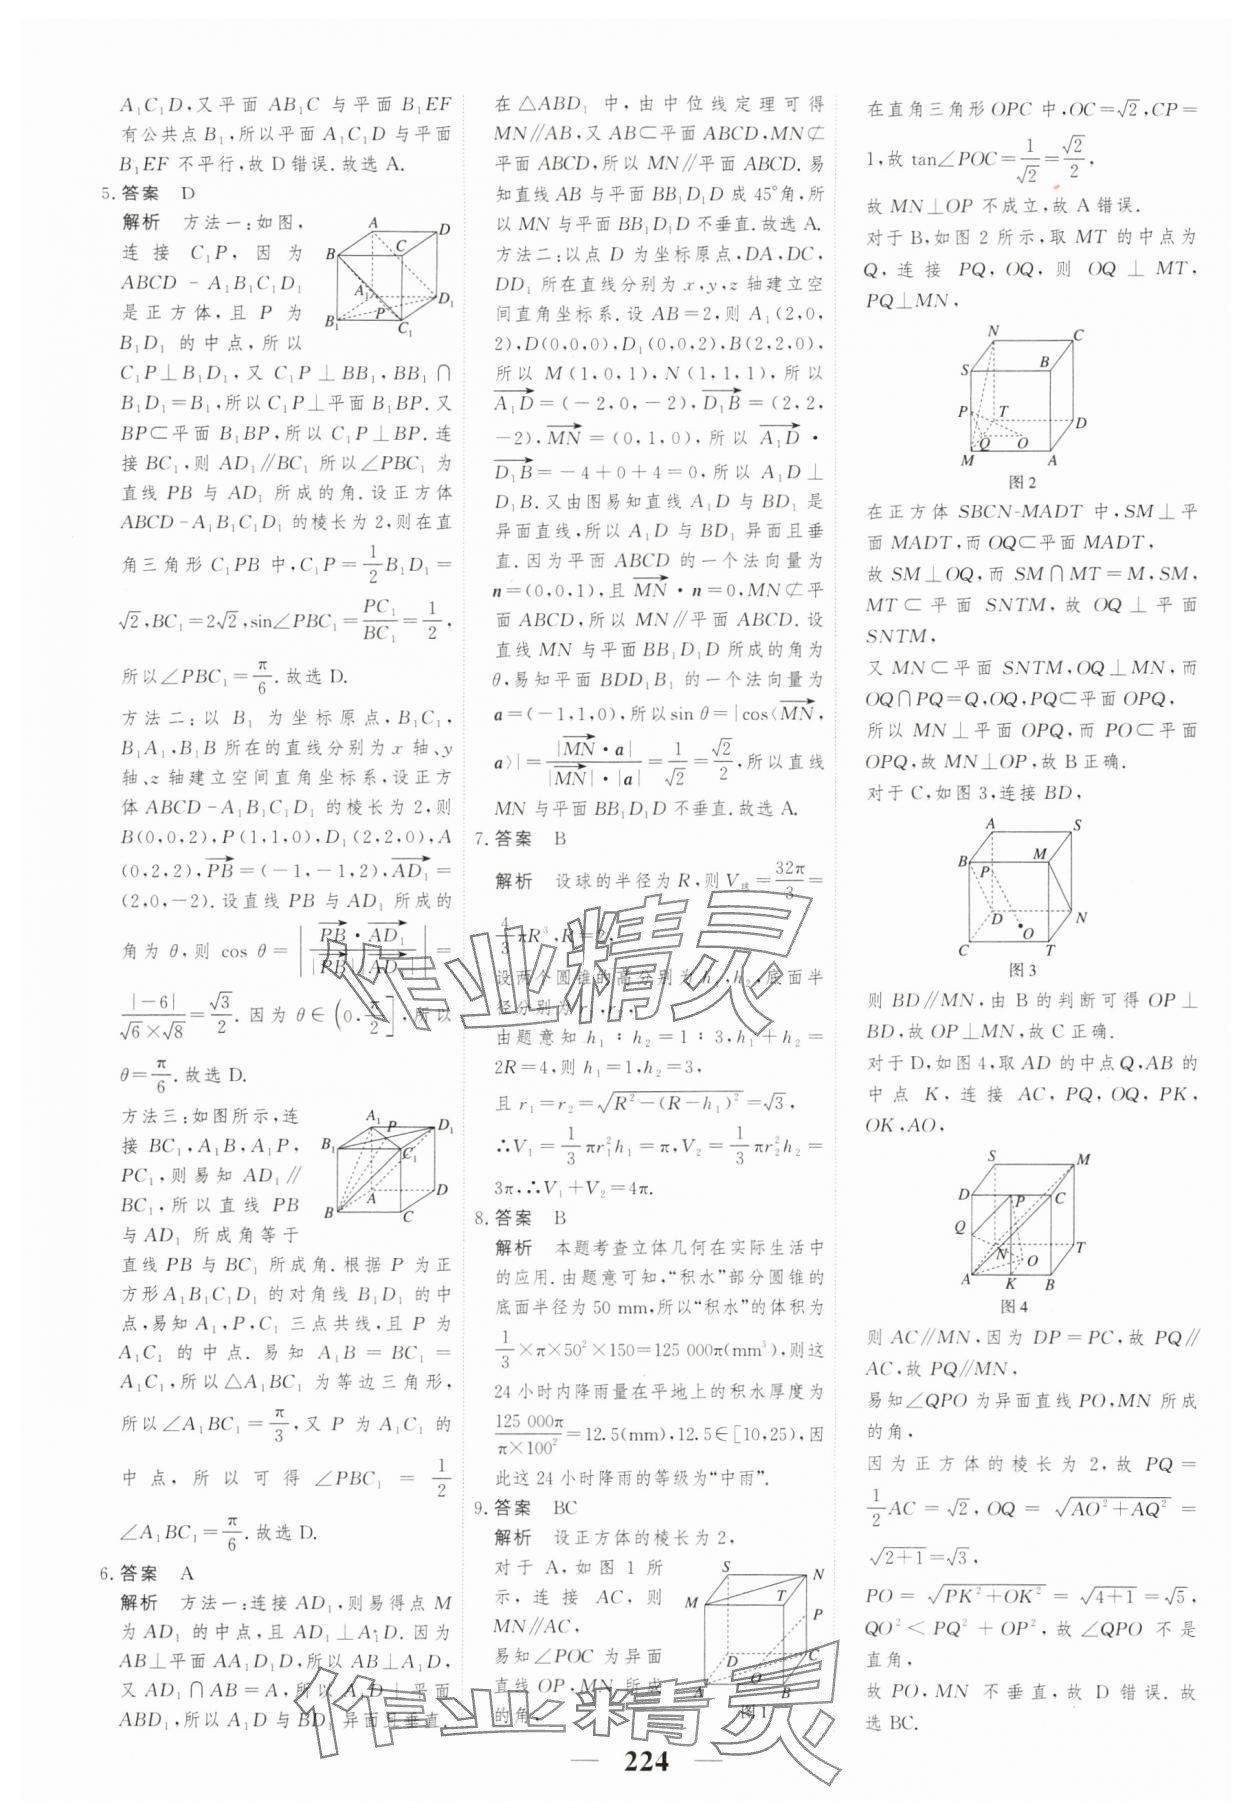 A₁C₁D,又平面 AB₁C 与平面 B₁EF
有公共点 B₁,所以平面 A₁C₁D 与平面
B₁EF 不平行,故 D 错误.故选 A.
5. 答案 D
解析 方法一:如图,
连接 C₁P,因为
ABCD-A₁B₁C₁D₁
是正方体,且 P 为
B₁D₁ 的中点,所以
C₁P⊥B₁D₁,又 C₁P⊥BB₁,BB₁∩
B₁D₁=B₁,所以 C₁P⊥平面 B₁BP.又
BP⊂平面 B₁BP,所以 C₁P⊥BP.连
接 BC₁,则 AD₁∥BC₁ 所以∠PBC₁ 为
直线 PB 与 AD₁ 所成的角.设正方体
ABCD-A₁B₁C₁D₁ 的棱长为 2,则在直
角三角形 C₁PB 中,C₁P=1/2 B₁D₁=
√2,BC₁=2√2,sin∠PBC₁=PC₁/BC₁=1/2,
所以∠PBC₁=π/6.故选 D.
方法二:以 B₁ 为坐标原点,B₁C₁,
B₁A₁,B₁B 所在的直线分别为 x 轴、y
轴、z 轴建立空间直角坐标系,设正方
体 ABCD-A₁B₁C₁D₁ 的棱长为 2,则
B(0,0,2),P(1,1,0),D₁(2,2,0),A
(0,2,2),PB→=(-1,-1,2),AD₁→=
(2,0,-2).设直线 PB 与 AD₁ 所成的
角为 θ,则 cos θ=|PB→·AD₁→/(|PB→||AD₁→|)|=
|-6|/(√6×√8)=√3/2.因为 θ∈(0,π/2],所以
θ=π/6.故选 D.
方法三:如图所示,连
接 BC₁,A₁B,A₁P,
PC₁,则易知 AD₁∥
BC₁,所以直线 PB
与 AD₁ 所成角等于
直线 PB 与 BC₁ 所成角.根据 P 为正
方形 A₁B₁C₁D₁ 的对角线 B₁D₁ 的中
点,易知 A₁,P,C₁ 三点共线,且 P 为
A₁C₁ 的中点.易知 A₁B=BC₁=
A₁C₁,所以△A₁BC₁ 为等边三角形,
所以∠A₁BC₁=π/3,又 P 为 A₁C₁ 的
中点,所以可得∠PBC₁=1/2
∠A₁BC₁=π/6.故选 D.
6. 答案 A
解析 方法一:连接 AD₁,则易得点 M
为 AD₁ 的中点,且 AD₁⊥A₁D.因为
AB⊥平面 AA₁D₁D,所以 AB⊥A₁D,
又 AD₁∩AB=A,所以 A₁D⊥平面
ABD₁,所以 A₁D 与 BD₁ 异面且垂直.
在△ABD₁ 中,由中位线定理可得
MN∥AB,又 AB⊂平面 ABCD,MN⊄
平面 ABCD,所以 MN∥平面 ABCD.易
知直线 AB 与平面 BB₁D₁D 成 45°角,所
以 MN 与平面 BB₁D₁D 不垂直.故选 A.
方法二:以点 D 为坐标原点,DA,DC,
DD₁ 所在直线分别为 x,y,z 轴建立空
间直角坐标系.设 AB=2,则 A₁(2,0,
2),D(0,0,0),D₁(0,0,2),B(2,2,0),
所以 M(1,0,1),N(1,1,1),所以
A₁D→=(-2,0,-2),D₁B→=(2,2,
-2),MN→=(0,1,0),所以 A₁D→·
D₁B→=-4+0+4=0,所以 A₁D⊥
D₁B.又由图易知直线 A₁D 与 BD₁ 是
异面直线,所以 A₁D 与 BD₁ 异面且垂
直.因为平面 ABCD 的一个法向量为
n=(0,0,1),且 MN→·n=0,MN⊄平
面 ABCD,所以 MN∥平面 ABCD.设
直线 MN 与平面 BB₁D₁D 所成的角为
θ,易知平面 BDD₁B₁ 的一个法向量为
a=(-1,1,0),所以 sin θ=|cos〈MN→,
a〉|=|MN→·a|/(|MN→|·|a|)=1/√2=√2/2,所以直线
MN 与平面 BB₁D₁D 不垂直.故选 A.
7. 答案 B
解析 设球的半径为 R,则 V球=32π/3=
4/3 πR³,R=2.
设两个圆锥的高分别为 h₁,h₂,底面半
径分别为 r₁,r₂,
由题意知 h₁∶h₂=1∶3,h₁+h₂=
2R=4,则 h₁=1,h₂=3,
且 r₁=r₂=√(R²-(R-h₁)²)=√3,
∴V₁=1/3 πr₁²h₁=π,V₂=1/3 πr₂²h₂=
3π,∴V₁+V₂=4π.
8. 答案 B
解析 本题考查立体几何在实际生活中
的应用.由题意可知,“积水”部分圆锥的
底面半径为 50 mm,所以“积水”的体积为
1/3×π×50²×150=125 000π(mm³),则这
24 小时内降雨量在平地上的积水厚度为
125 000π/(π×100²)=12.5(mm),12.5∈[10,25),因
此这 24 小时降雨的等级为“中雨”.
9. 答案 BC
解析 设正方体的棱长为 2,
对于 A,如图 1 所
示,连接 AC,则
MN∥AC,
易知∠POC 为异面
直线 OP,MN 所成
的角,
图 1
在直角三角形 OPC 中,OC=√2,CP=
1,故 tan∠POC=1/√2=√2/2,
故 MN⊥OP 不成立,故 A 错误.
对于 B,如图 2 所示,取 MT 的中点为
Q,连接 PQ,OQ,则 OQ⊥MT,
PQ⊥MN,
图 2
在正方体 SBCN-MADT 中,SM⊥平
面 MADT,而 OQ⊂平面 MADT,
故 SM⊥OQ,而 SM∩MT=M,SM,
MT⊂平面 SNTM,故 OQ⊥平面
SNTM,
又 MN⊂平面 SNTM,OQ⊥MN,而
OQ∩PQ=Q,OQ,PQ⊂平面 OPQ,
所以 MN⊥平面 OPQ,而 PO⊂平面
OPQ,故 MN⊥OP,故 B 正确.
对于 C,如图 3,连接 BD,
图 3
则 BD∥MN,由 B 的判断可得 OP⊥
BD,故 OP⊥MN,故 C 正确.
对于 D,如图 4,取 AD 的中点 Q,AB 的
中点 K,连接 AC,PQ,OQ,PK,
OK,AO,
图 4
则 AC∥MN,因为 DP=PC,故 PQ∥
AC,故 PQ∥MN,
易知∠QPO 为异面直线 PO,MN 所成
的角,
因为正方体的棱长为 2,故 PQ=
1/2 AC=√2,OQ=√(AO²+AQ²)=
√(2+1)=√3,
PO=√(PK²+OK²)=√(4+1)=√5,
QO²<PQ²+OP²,故∠QPO 不是
直角,
故 PO,MN 不垂直,故 D 错误.故
选 BC.
作业精灵
作业精灵
224